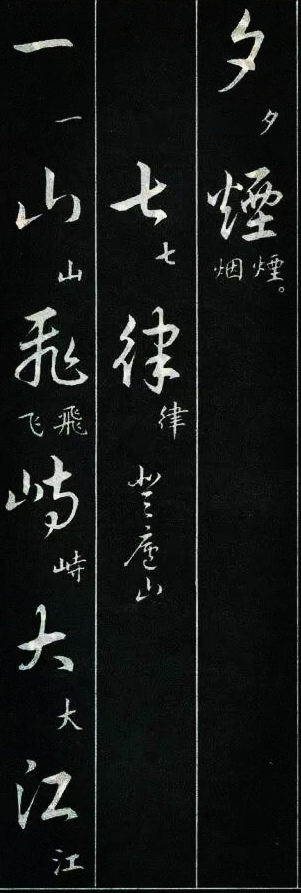 夕 夕 煙 烟 煙。
七 七 律 律 登廬山
一 一 山 山 飛 飞 飛 峙 峙 大 大 江 江